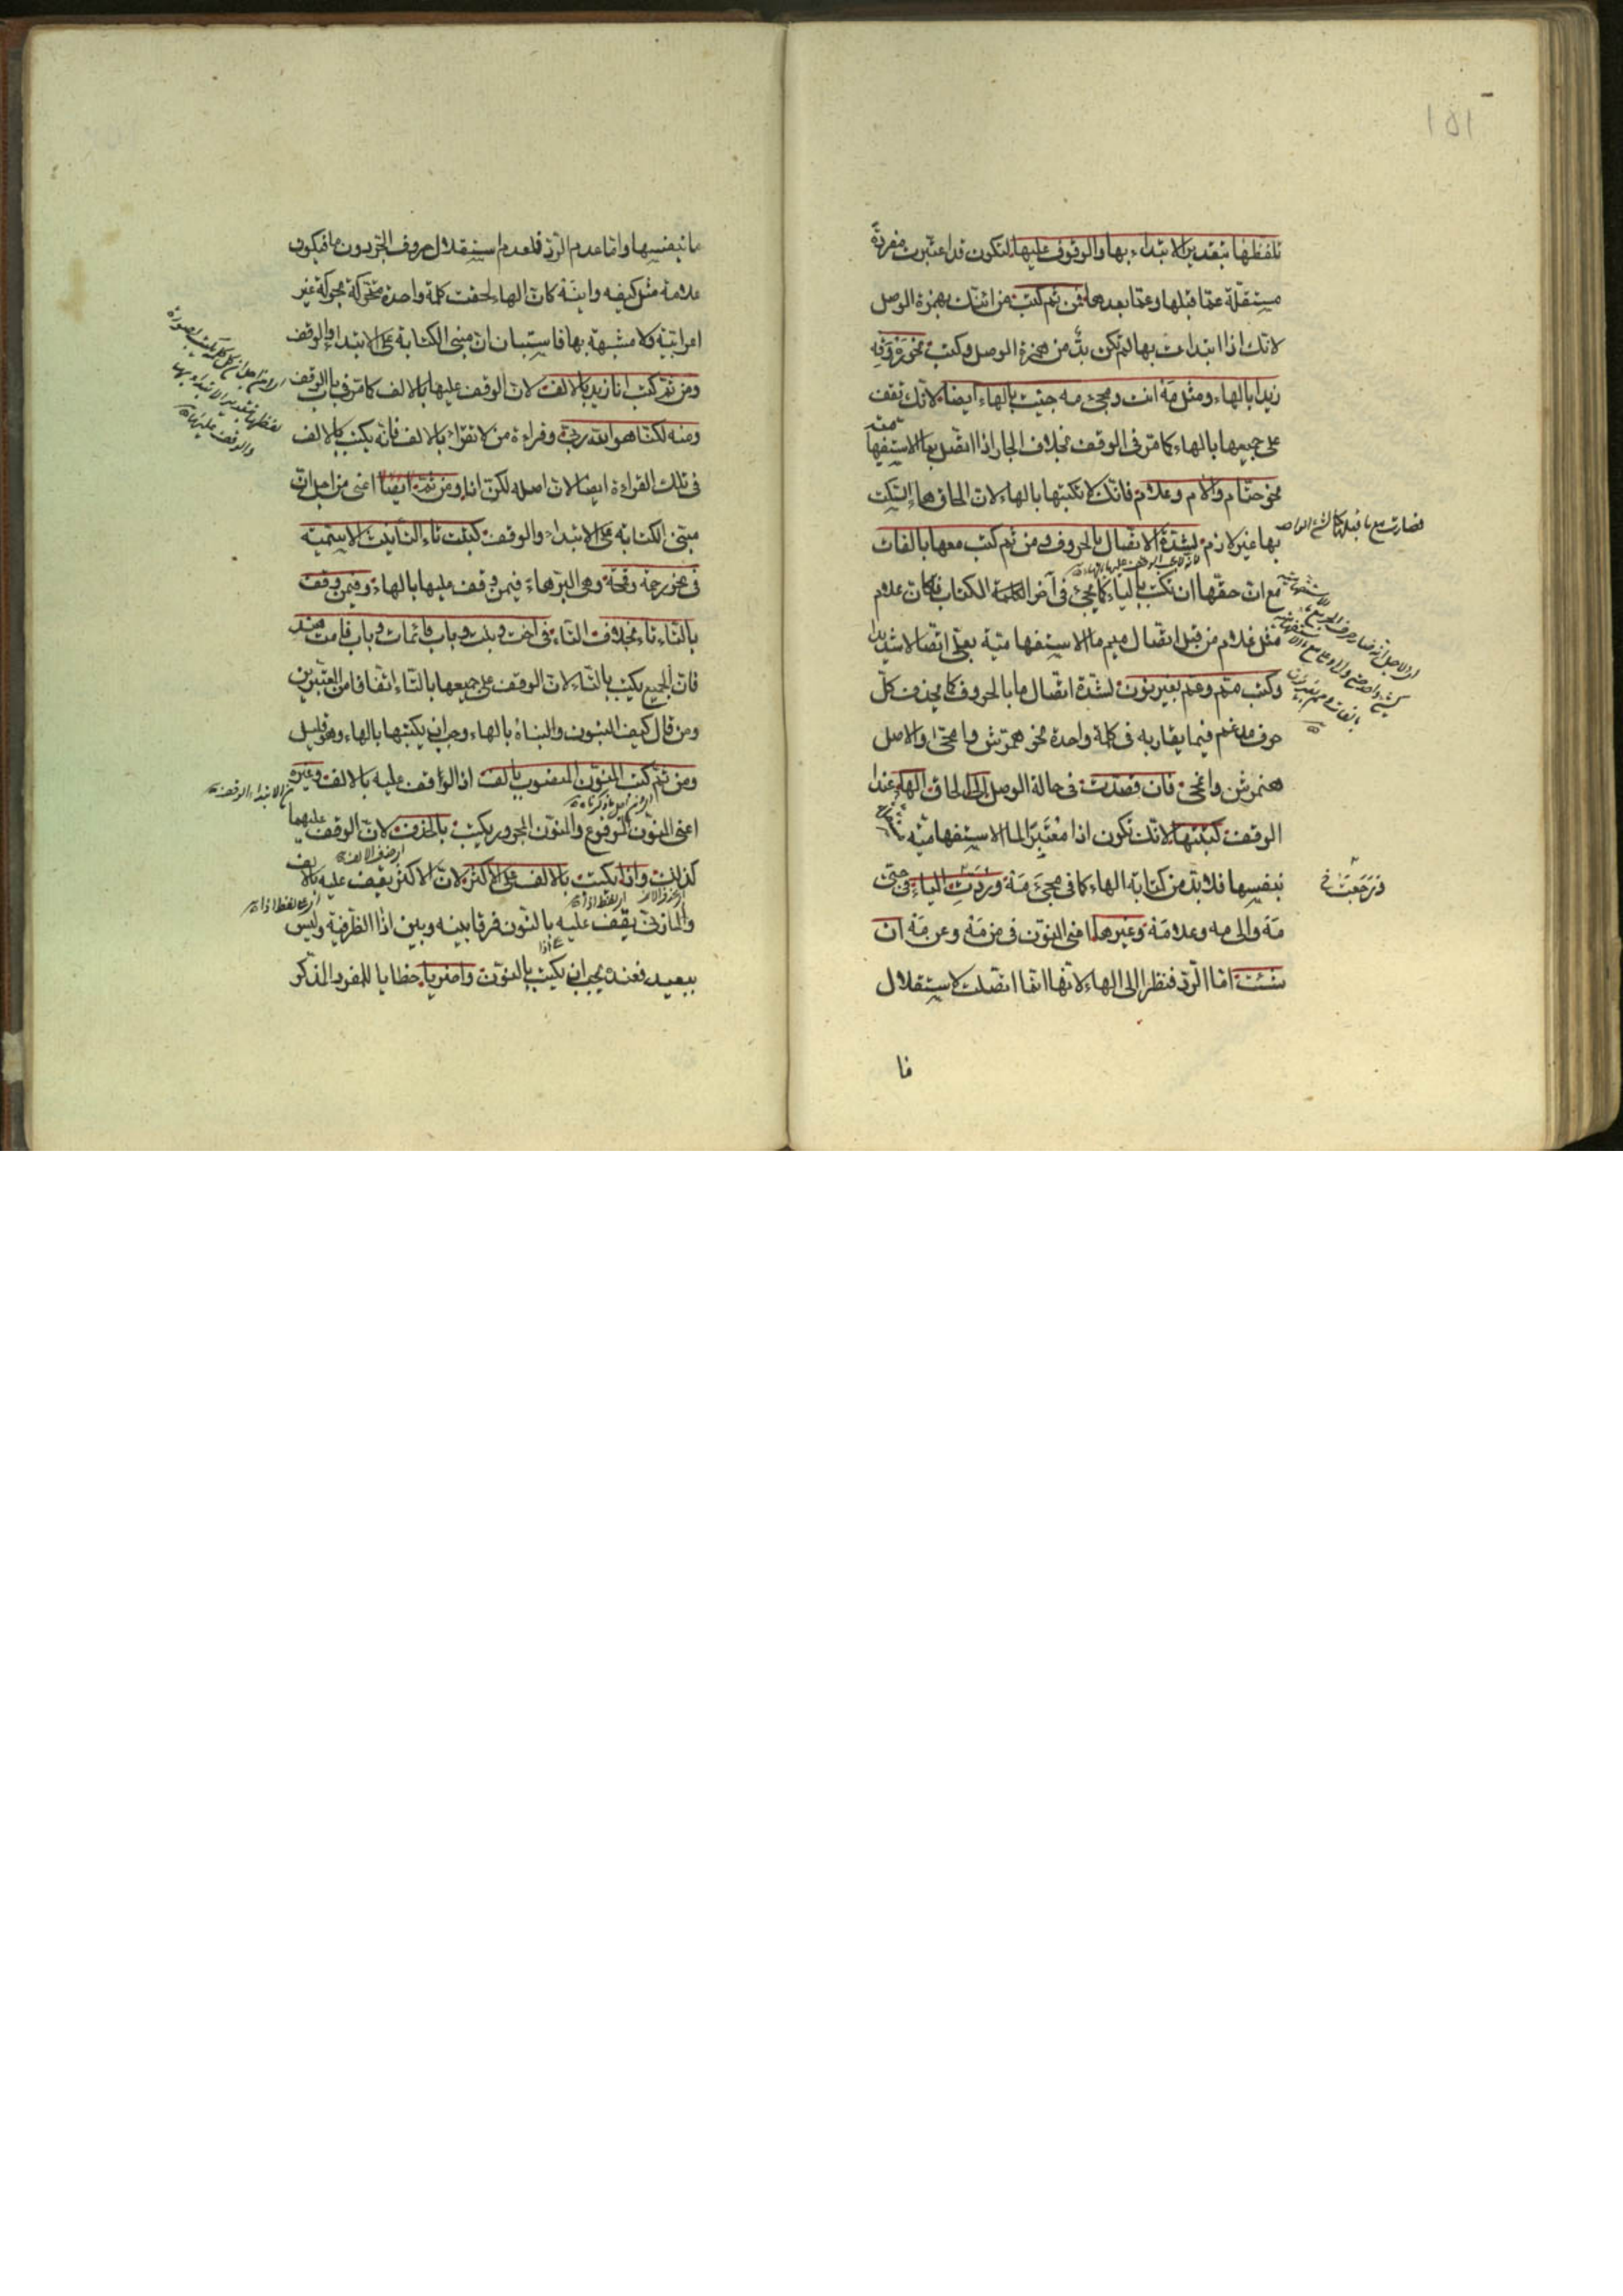 ١٥١
تلفظها بتقدير الابتداء بها والوقوف عليها لتكون قد اعتبرت مفردة
مستقلة عما قبلها وعما بعدها فمن ثم كتب من ابنك بهمزة الوصل
لانك اذا ابتدات بها لم تكن بد من همزة الوصل وكتب نحو ره وقه
زيدا بالهاء ومثل مه انت ومجئ مه جئت بالهاء ايضا لانك تقف
على جميعها بالهاء كما مر في الوقف بخلاف الجار اذا اتصل بما الاستفهامية
نحو حتام والام وعلام فانك لا تكتبها بالهاء لان الحاق هاء السكت
بها غير لازم لشدة الاتصال بالحروف ومن ثم كتب معها بالفات
مع ان حقها ان تكتب بالياء كما يجئ في آخر الكلمة الكتاب فكان علام
مثل غلام من قبل اتصال ميم ما الاستفهامية بعلى اتصالا شديدا
وكتب مم وعم بغير نون لشدة اتصال ما بالحروف كما يحذف كل
حرف مدغم فيما يقاربه في كلمة واحدة نحو همرش وامحى والاصل
هنمرش وانمحى فان قصدت في حالة الوصل الى الحاق الهاء عند
الوقف كتبتها لانك تكون اذا معتبرا لما الاستفهامية
بنفسها فلا بد من كتابة الهاء كما في مجئ مه ورددت الياء في حتى
مه والى مه وعلا مه وغيرها اعني النون في من مه وعن مه ان
شئت اما الرد فنظرا الى الهاء لانها انما اتصلت لاستقلال
فصارت مع ما قبلها كالشئ الواحد
فرجعت
فا
ما بنفسها واما عدم الرد فلعدم استقلال حروف الجر بدون ما فيكون
علامه مثل كيفه واينه كان الهاء لحقت كلمة واحدة متحركة بحركة غير
اعرابية ولا مشبهة بها فاستبان ان مبنى الكتابة على الابتداء والوقف
ومن ثم كتب انا زيد بالالف لان الوقف عليها بالالف كما مر في باب الوقف
ومنه لكنا هو الله ربي وقراءة من لا تقراء بالالف فانه يكتب بالالف
في تلك القراءة ايضا لان اصله لكن انا ومن ثمه ايضا اعني من اجل ان
مبنى الكتابة على الابتداء والوقف كتبت تاء التانيث الاسمية
في نحو رحمة وقمحة وهي البر هاء فيمن وقف عليها بالهاء وفيمن وقف
بالتاء تاء بخلاف التاء في اخت وبنت وباب قائمات وباب قامت هند
فان الجميع يكتب بالتاء لان الوقف على جميعها بالتاء اتفاقا من المعتبرين
ومن قال كيف البنون والبناه بالهاء وجب ان يكتبها بالهاء وهو قليل
ومن ثم كتب المنون المنصوب بالف اذ الواقف عليه بالالف وغيره
اعني المنون المرفوع والمنون المجرور يكتب بالحذف لان الوقف عليهما
كذلك واذا يكتب بالالف على الاكثر لان الاكثر يقف عليه بالالف
والمازني يقف عليه بالنون فرقا بينه وبين اذا الظرفية وليس
ببعيد فعنده يجب ان يكتب بالنون واضربا خطابا للمفرد المذكر